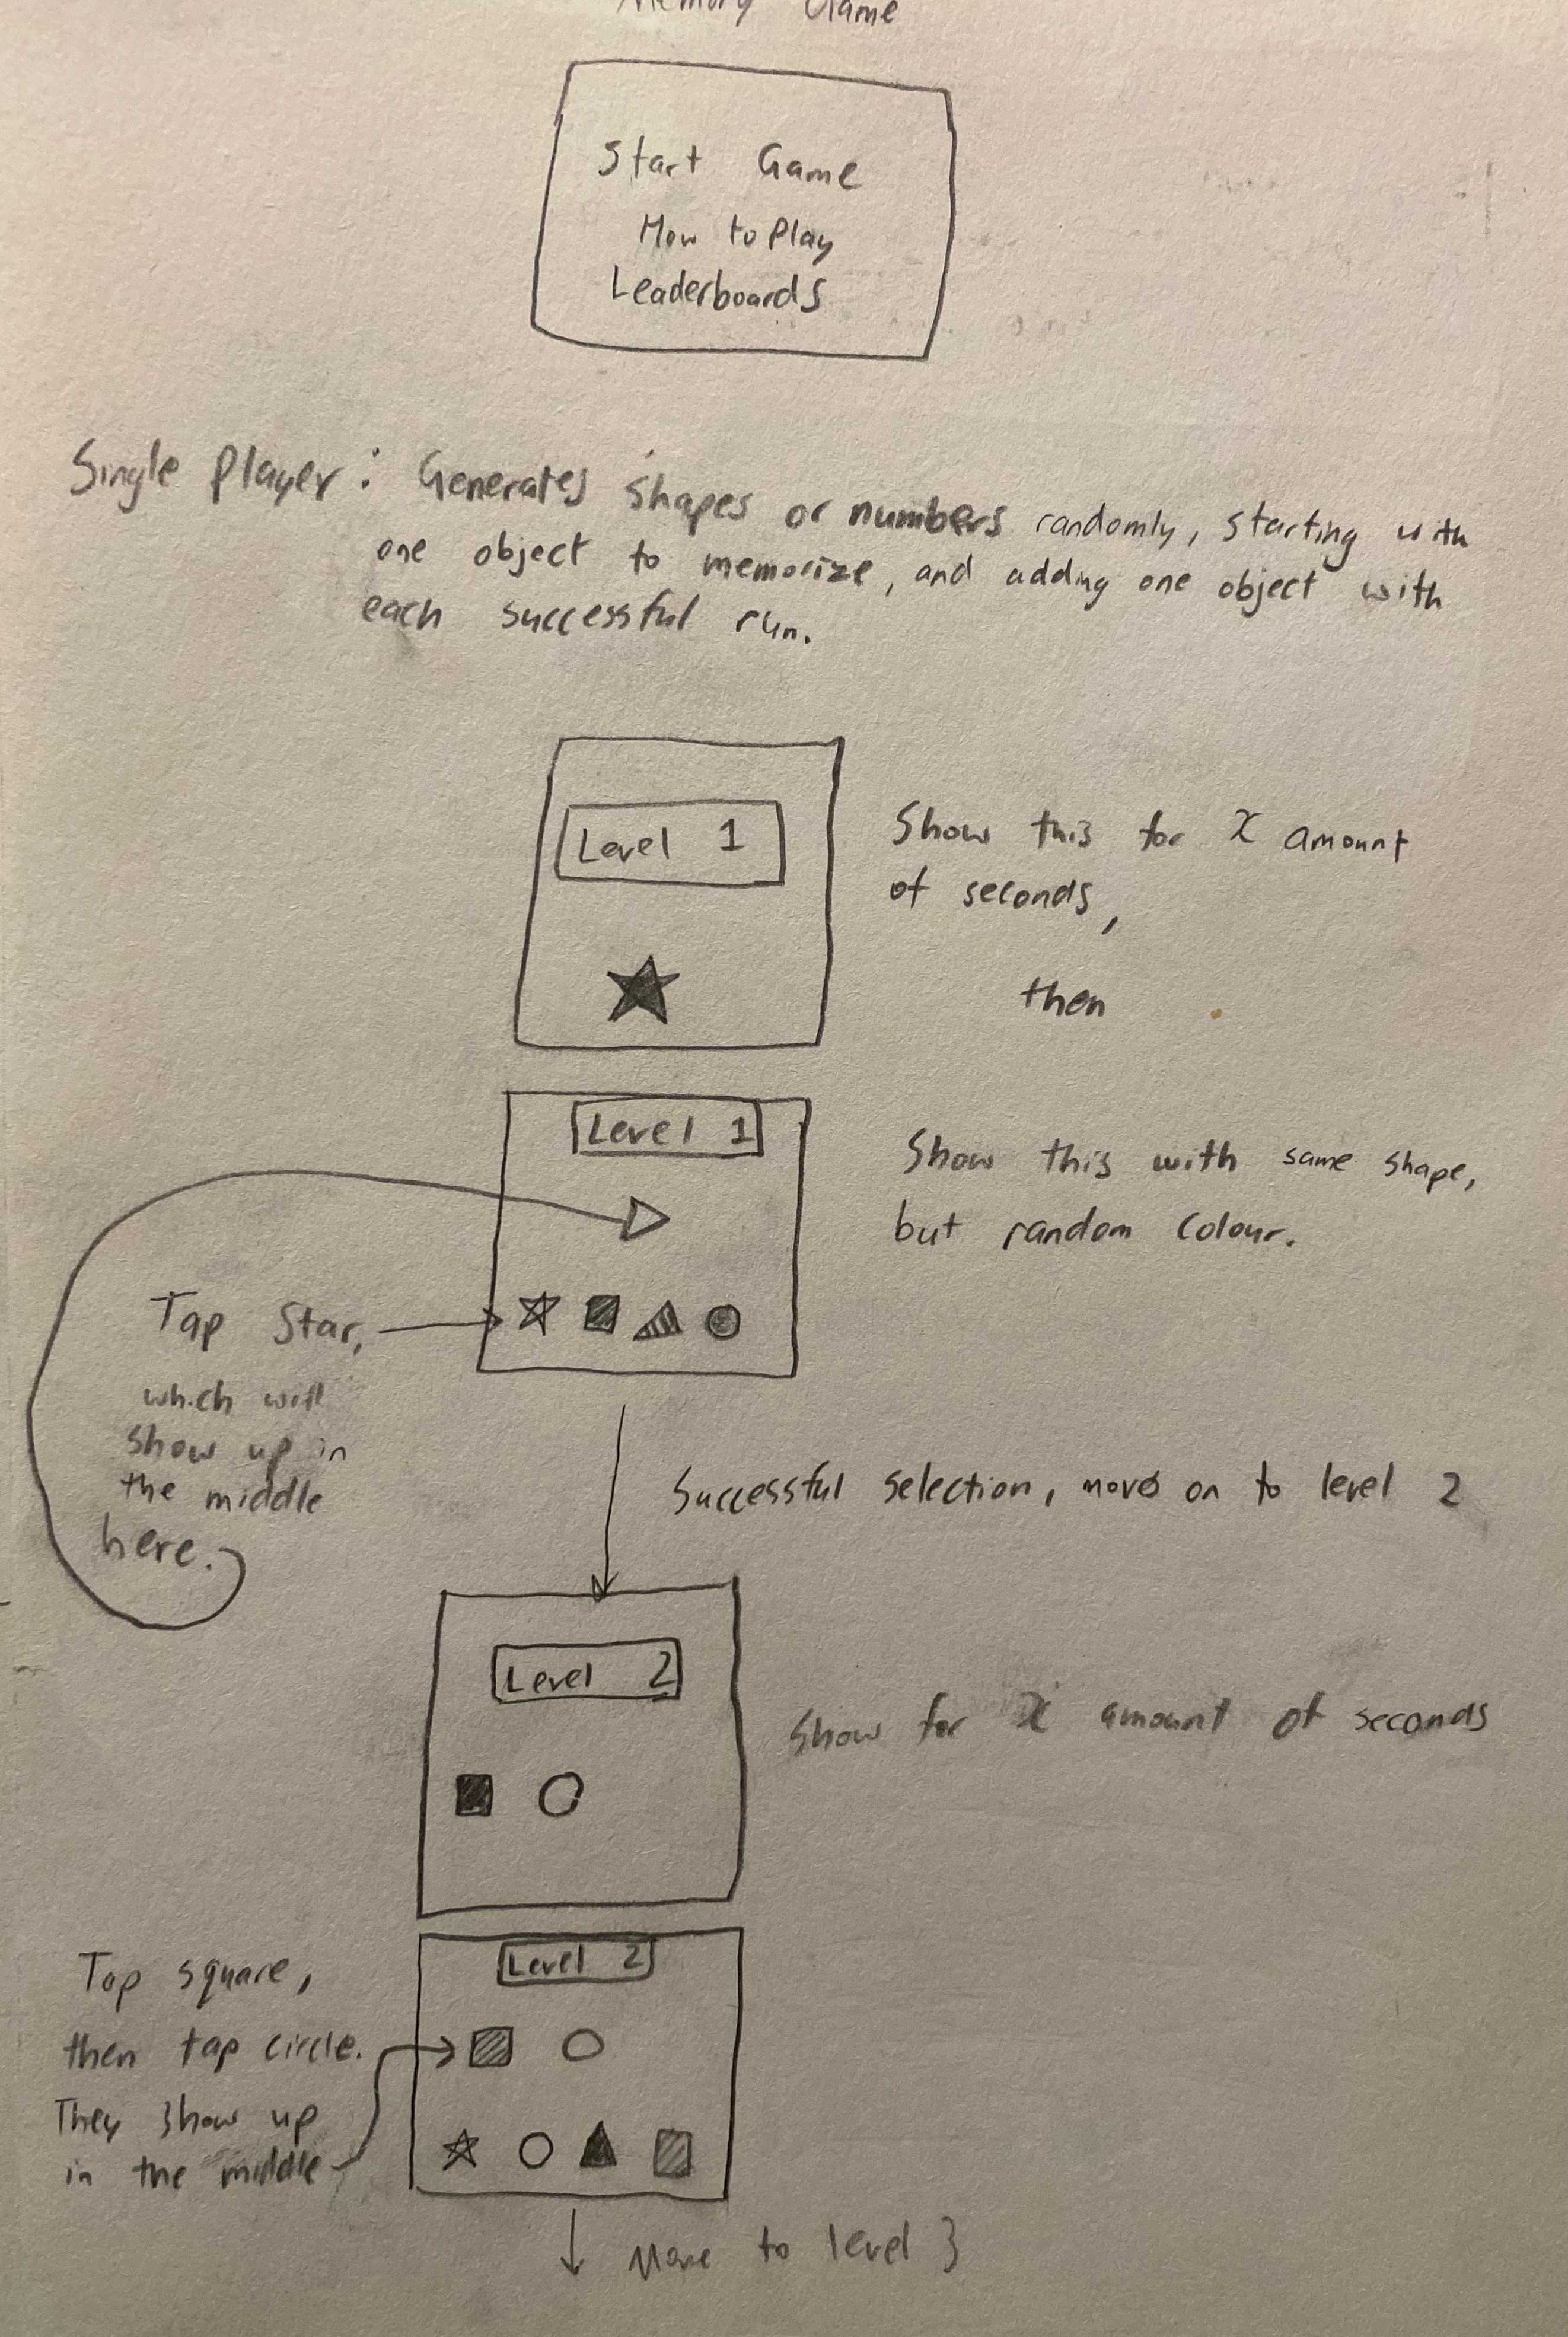 Memory Game
Start Game
How to Play
Leaderboards
Single Player: Generates shapes or numbers randomly, starting with
one object to memorize, and adding one object with
each successful run.
Level 1
Show this for x amount
of seconds,
then
Level 1
Show this with same shape,
but random colour.
Tap Star,
which will
show up in
the middle
here.
Successful selection, moves on to level 2
Level 2
Show for x amount of seconds
Level 2
Tap square,
then tap circle.
They show up
in the middle
Move to level 3